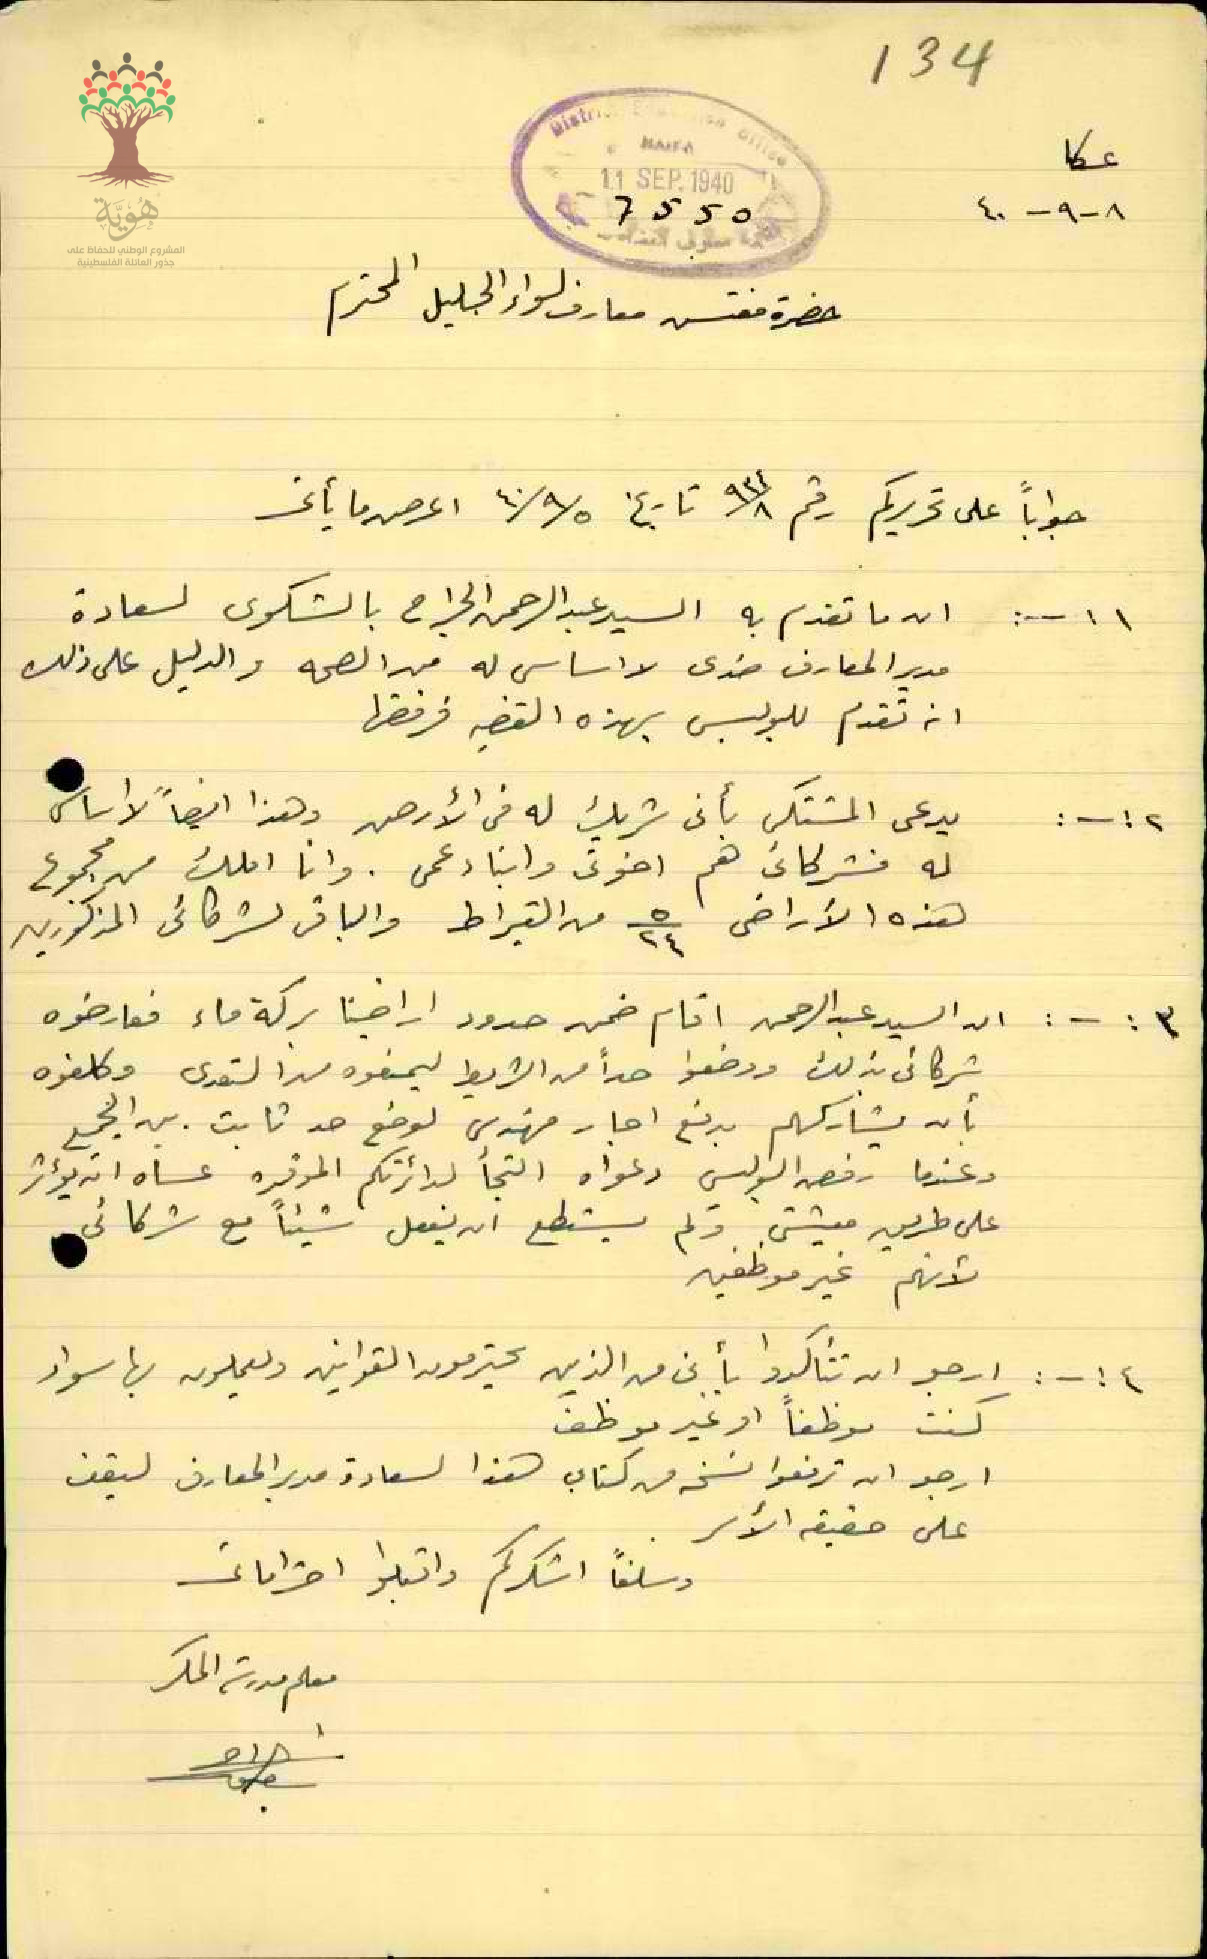 134
هُوِيَّة
المشروع الوطني للحفاظ على
جذور العائلة الفلسطينية
District Education Office
HAIFA
11 SEP. 1940
7550
عكا
٨-٩-٤٠
حضرة مفتش معارف لواء الجليل المحترم
جواباً على تحريركم رقم ٩٣٤/٨ تاريخ ٤٠/٩/٥ اعرض ما يأتي
١١-: ان ما تقدم به السيد عبد الرحمن الجراح بالشكوى لسعادة
مدير المعارف ضدى لا اساس له من الصحه والدليل على ذلك
انه تقدم للبوليس بهذه القضيه فرفضها
٢:-: يدعى المشتكى بأنى شريك له فى الأرض وهذا ايضاً لا اساس
له فشركائى هم اخوتى وابناء عمى . وانا املك من مجموع
هذه الأراضى ٥/٢٤ من القيراط والباقى لشركائى المذكورين
٣:-: ان السيد عبد الرحمن اقام ضمن حدود اراضينا بركة ماء فعارضوه
شركائى بذلك ووضعوا حداً من الشريط ليمنعوه من التعدى وكلفوه
بأن يشاركهم بدفع اجار مهندس لوضع حد ثابت بين الجميع
وعندما رفض البوليس دعواه التجأ لدائرتكم الموقره عساه ان يؤثر
على طريق معيشتى ولم يستطع ان يفعل شيئاً مع شركائى
لأنهم غير موظفين
٤:-: ارجو ان تتأكدوا بأننى من الذين يحترمون القوانين ويعملون بها سواء
كنت موظفاً او غير موظف
ارجو ان ترفعوا نسخه من كتابى هذا لسعادة مدير المعارف ليقف
على حقيقة الأمر .
وسلفاً اشكركم واقبلوا احتراماتى
معلم مدرسة المكر